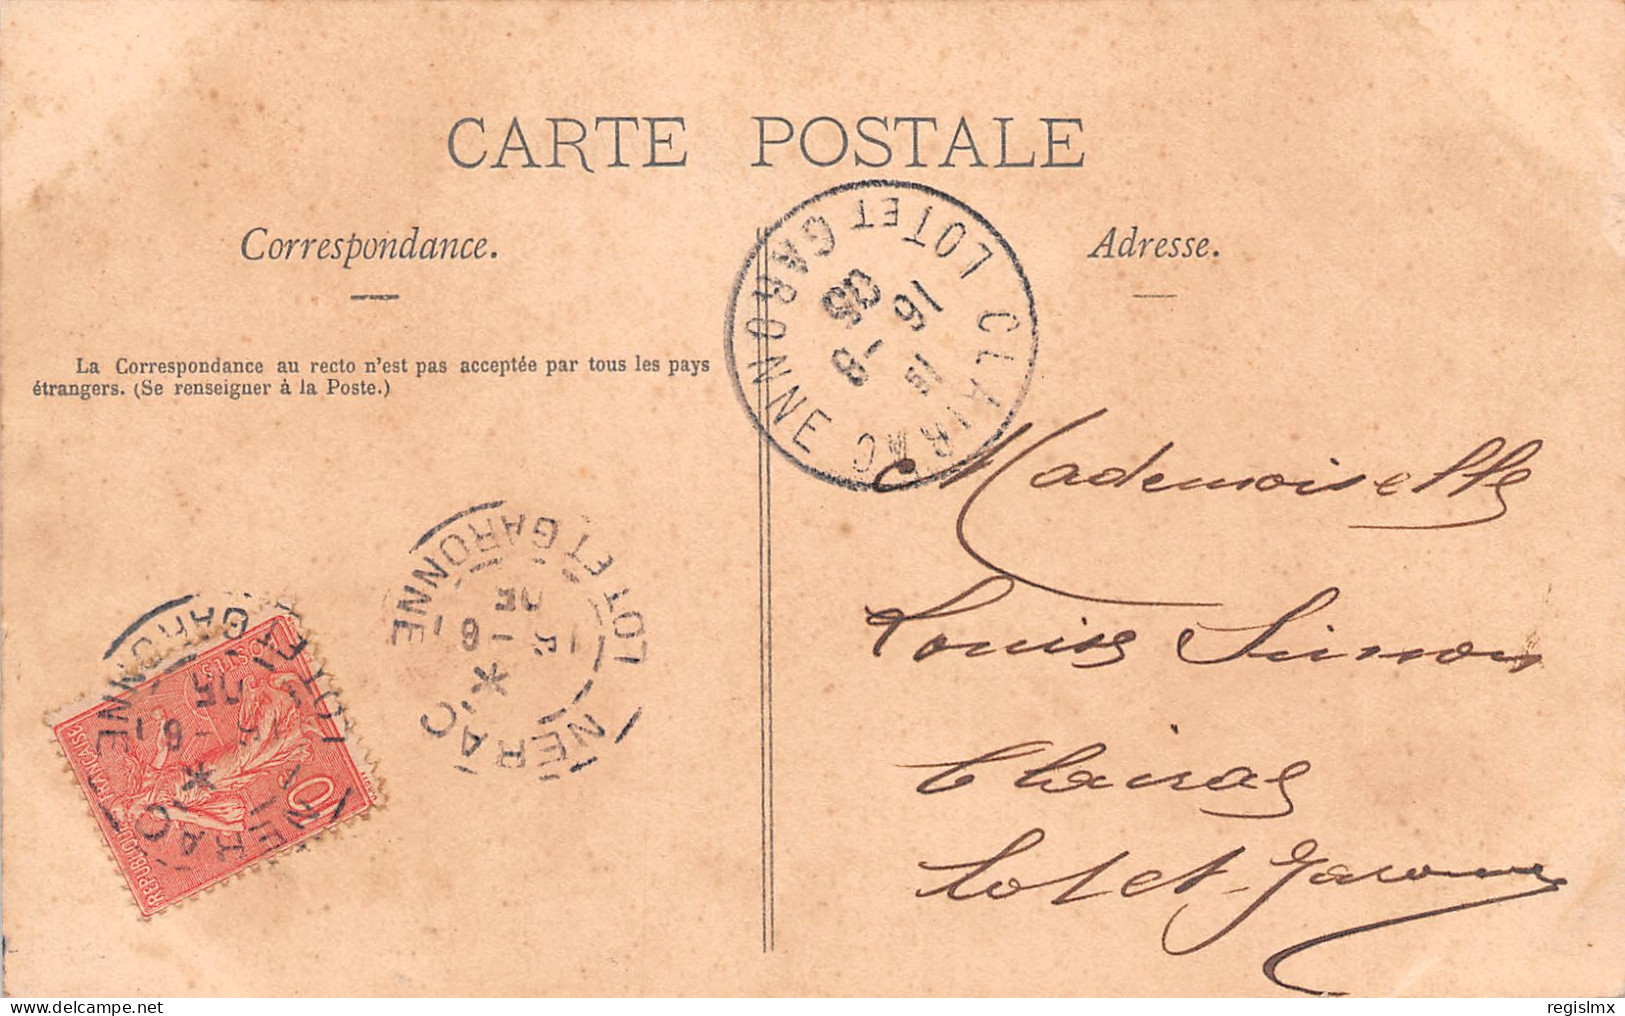 CARTE POSTALE
Correspondance.
Adresse.
La Correspondance au recto n'est pas acceptée par tous les pays
étrangers. (Se renseigner à la Poste.)
CLAIRAC LOT ET GARONNE
16
8 -
NERAC LOT ET GARONNE
- 6
05
NERAC LOT ET GARONNE
- 6
05
REPUBLIQUE FRANÇAISE
POSTES
10
Mademoiselle
Louise Simon
Clairac
Lot et Garonne
regislmx